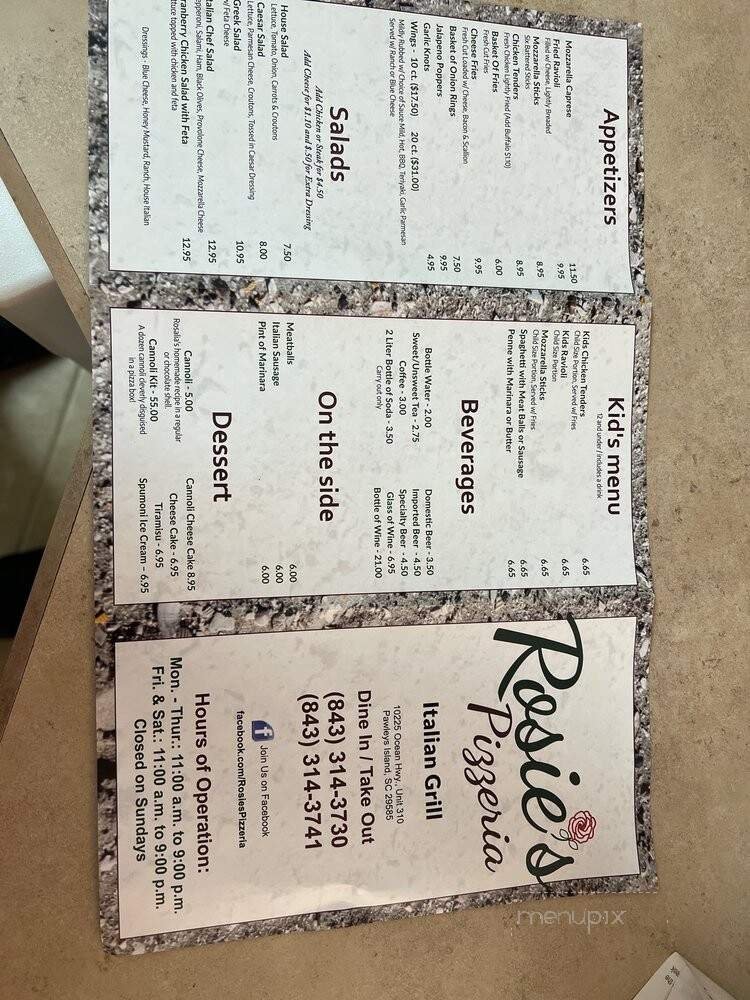 Appetizers
Mozzarella Caprese 11.50
Fried Ravioli 9.95
Filled w/ Cheese, Lightly Breaded
Mozzarella Sticks 8.95
Six Battered Sticks
Chicken Tenders 8.95
Fresh Chicken Lightly Fried (Add Buffalo $1.10)
Basket Of Fries 6.00
Fresh Cut Fries
Cheese Fries 9.95
Fresh Cut Loaded w/ Cheese, Bacon & Scallion
Basket of Onion Rings 7.50
Jalapeno Poppers 9.95
Garlic Knots 4.95
Wings - 10 ct. ($17.50) 20 ct. ($31.00)
Mildly Rubbed w/ Choice of Sauce Mild, Hot, BBQ, Teriyaki, Garlic Parmesan
Served w/ Ranch or Blue Cheese
Salads
Add Chicken or Steak for $4.50
Add Cheese for $1.10 and $.50 for Extra Dressing
House Salad 7.50
Lettuce, Tomato, Onion, Carrots & Croutons
Caesar Salad 8.00
Lettuce, Parmesan Cheese, Croutons, Tossed in Caesar Dressing
Greek Salad 10.95
w/ Feta Cheese
talian Chef Salad 12.95
epperoni, Salami, Ham, Black Olives, Provolone Cheese, Mozzarella Cheese
ranberry Chicken Salad with Feta 12.95
ttuce topped with chicken and feta
Dressings - Blue Cheese, Honey Mustard, Ranch, House Italian
Kid's menu
12 and under / includes a drink
Kids Chicken Tenders 6.65
Child Size Portion, Served w/ Fries
Kids Ravioli 6.65
Child Size Portion
Mozzarella Sticks 6.65
Child Size Portion, Served w/ Fries
Spaghetti with Meat Balls or Sausage 6.65
Penne with Marinara or Butter 6.65
Beverages
Bottle Water - 2.00
Sweet/Unsweet Tea - 2.75
Coffee - 3.00
2 Liter Bottle of Soda - 3.50
Carry out only
Domestic Beer - 3.50
Imported Beer - 4.50
Specialty Beer - 4.50
Glass of Wine - 6.95
Bottle of Wine - 21.00
On the side
Meatballs 6.00
Italian Sausage 6.00
Pint of Marinara 6.00
Dessert
Cannoli - 5.00
Rosalia's homemade recipe in a regular
or chocolate shell
Cannoli Kit - 55.00
A dozen cannoli cleverly disguised
in a pizza box!
Cannoli Cheese Cake 8.95
Cheese Cake - 6.95
Tiramisu - 6.95
Spumoni Ice Cream - 6.95
Rosie's
Pizzeria
Italian Grill
10225 Ocean Hwy., Unit 310
Pawleys Island, SC 29585
Dine In / Take Out
(843) 314-3730
(843) 314-3741
f Join Us on Facebook
facebook.com/RosiesPizzeria
Hours of Operation:
Mon. - Thur.: 11:00 a.m. to 9:00 p.m.
Fri. & Sat.: 11:00 a.m. to 9:00 p.m.
Closed on Sundays
menupix